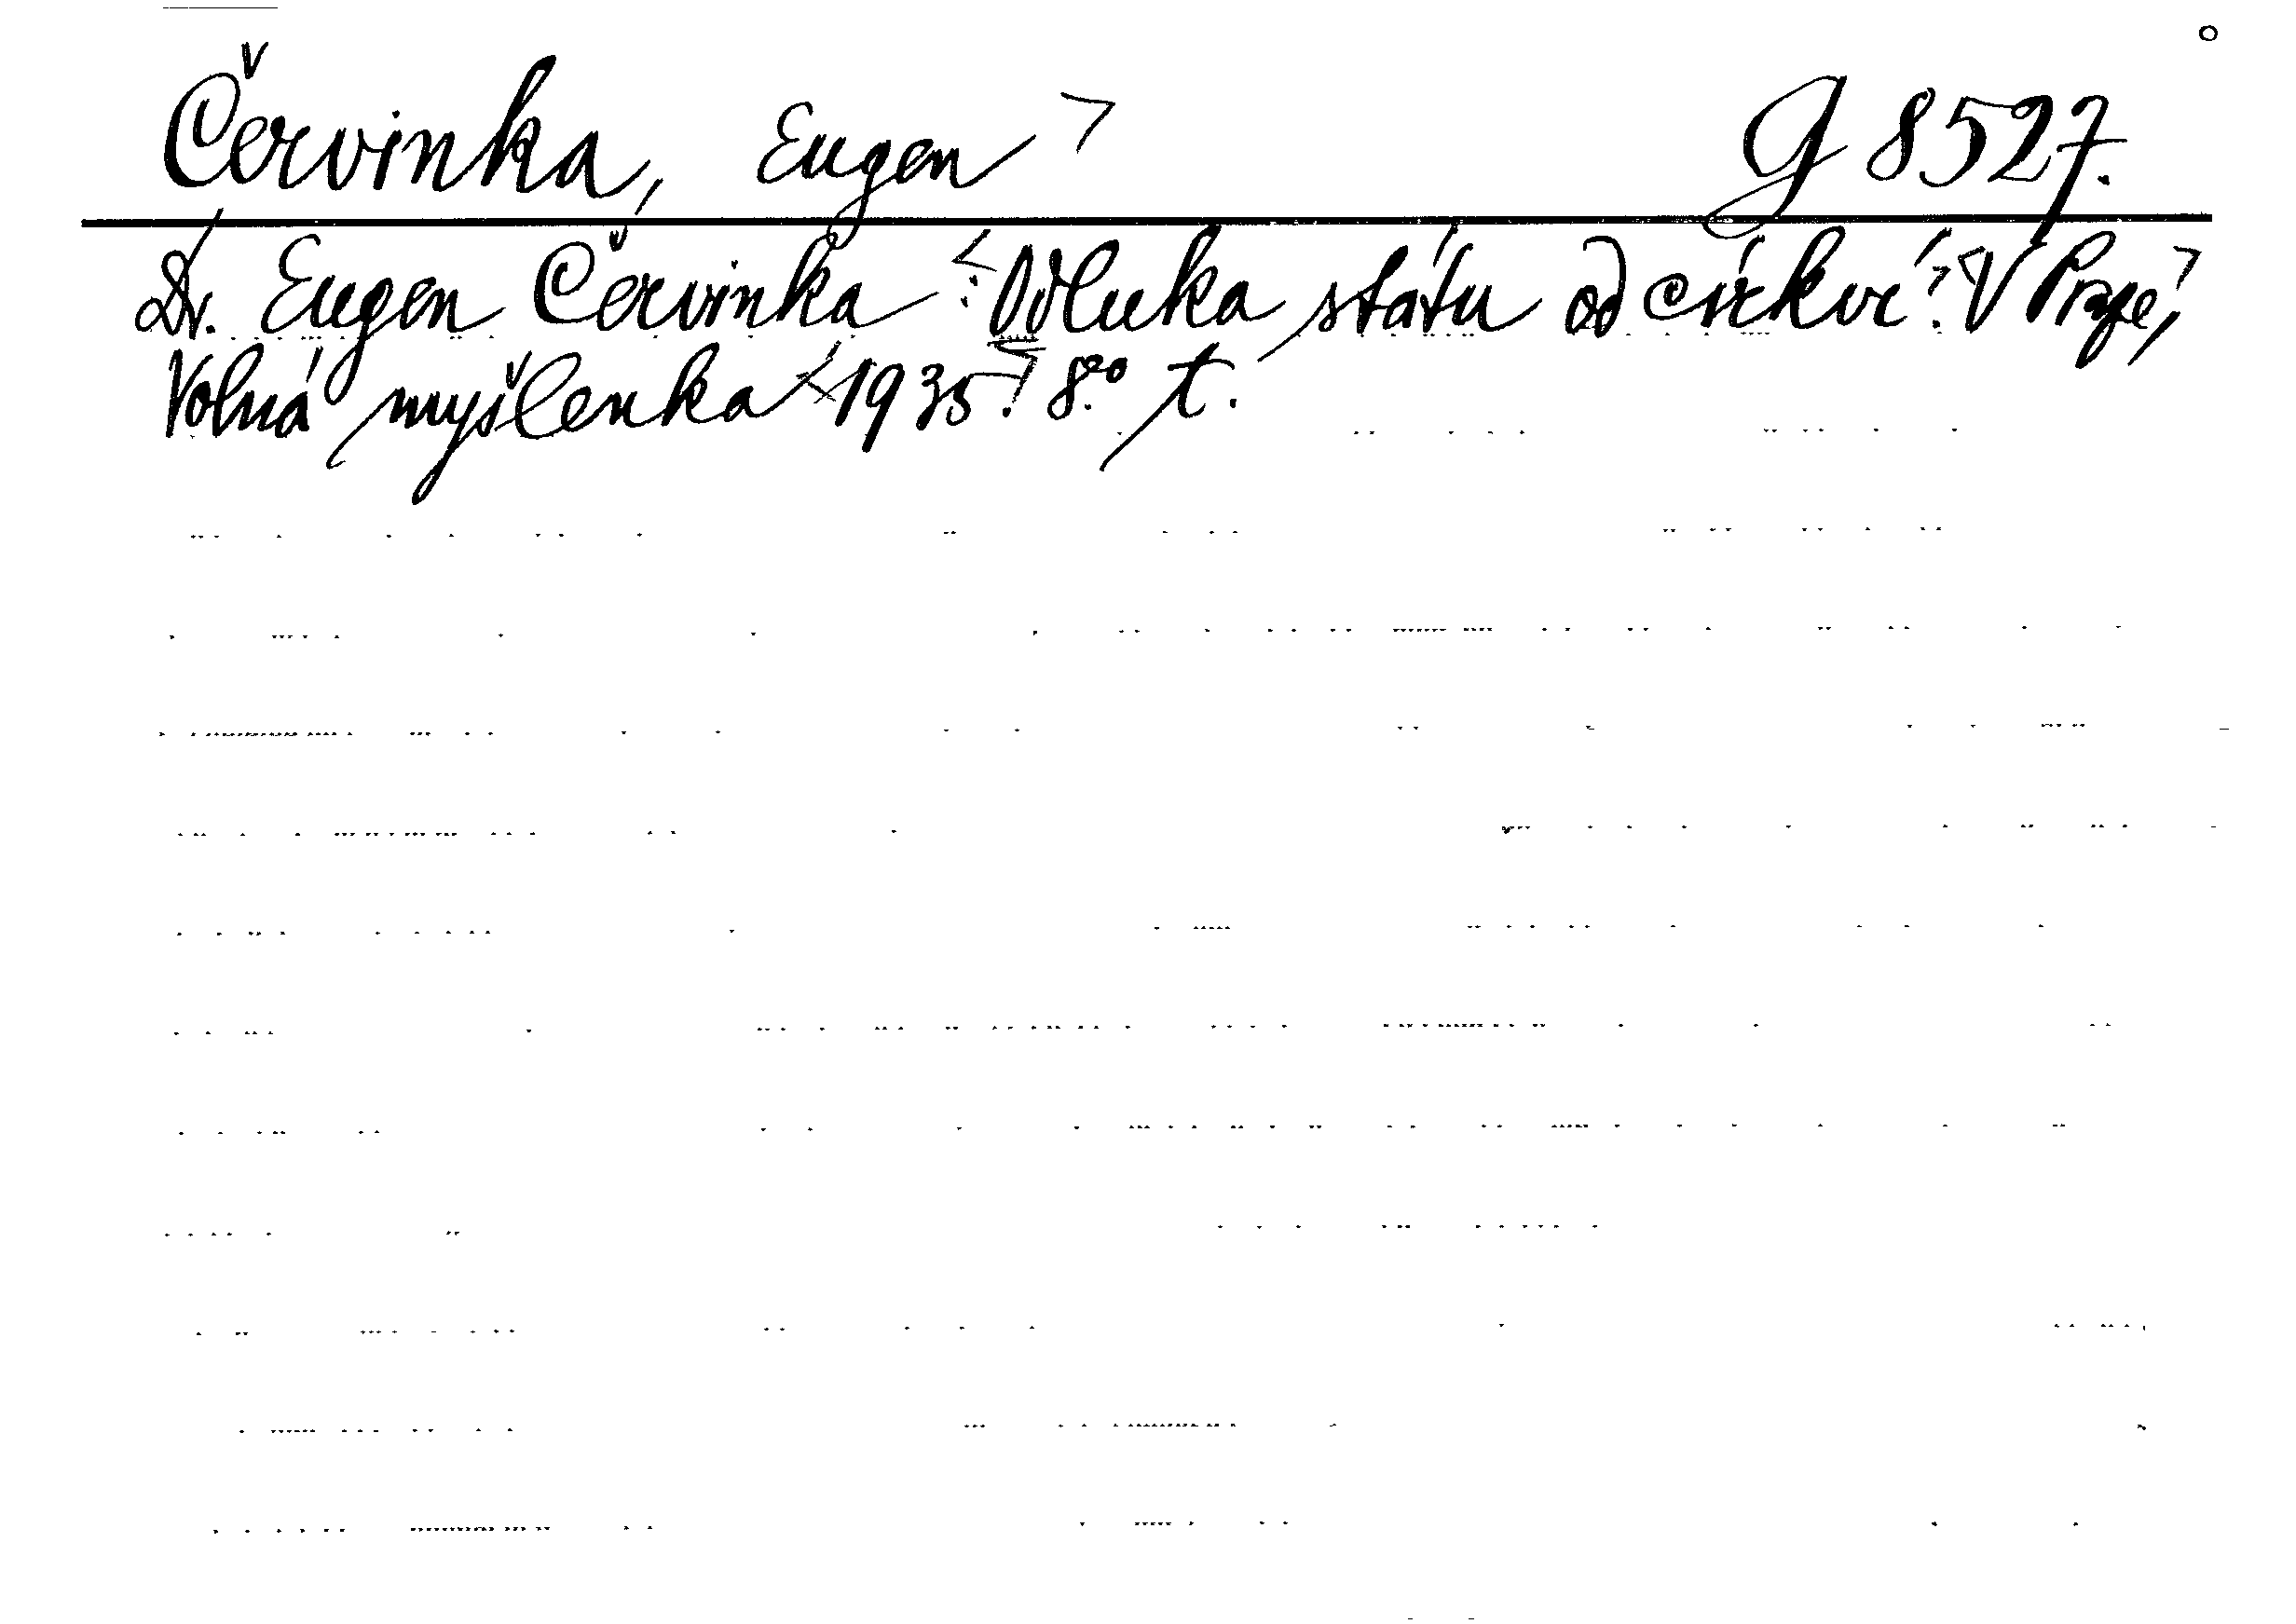 Červinka, Eugen G 8527.
Dr. Eugen Červinka: Odluka státu od církví. V Praze,
Volná myšlenka 1935. 8° t.